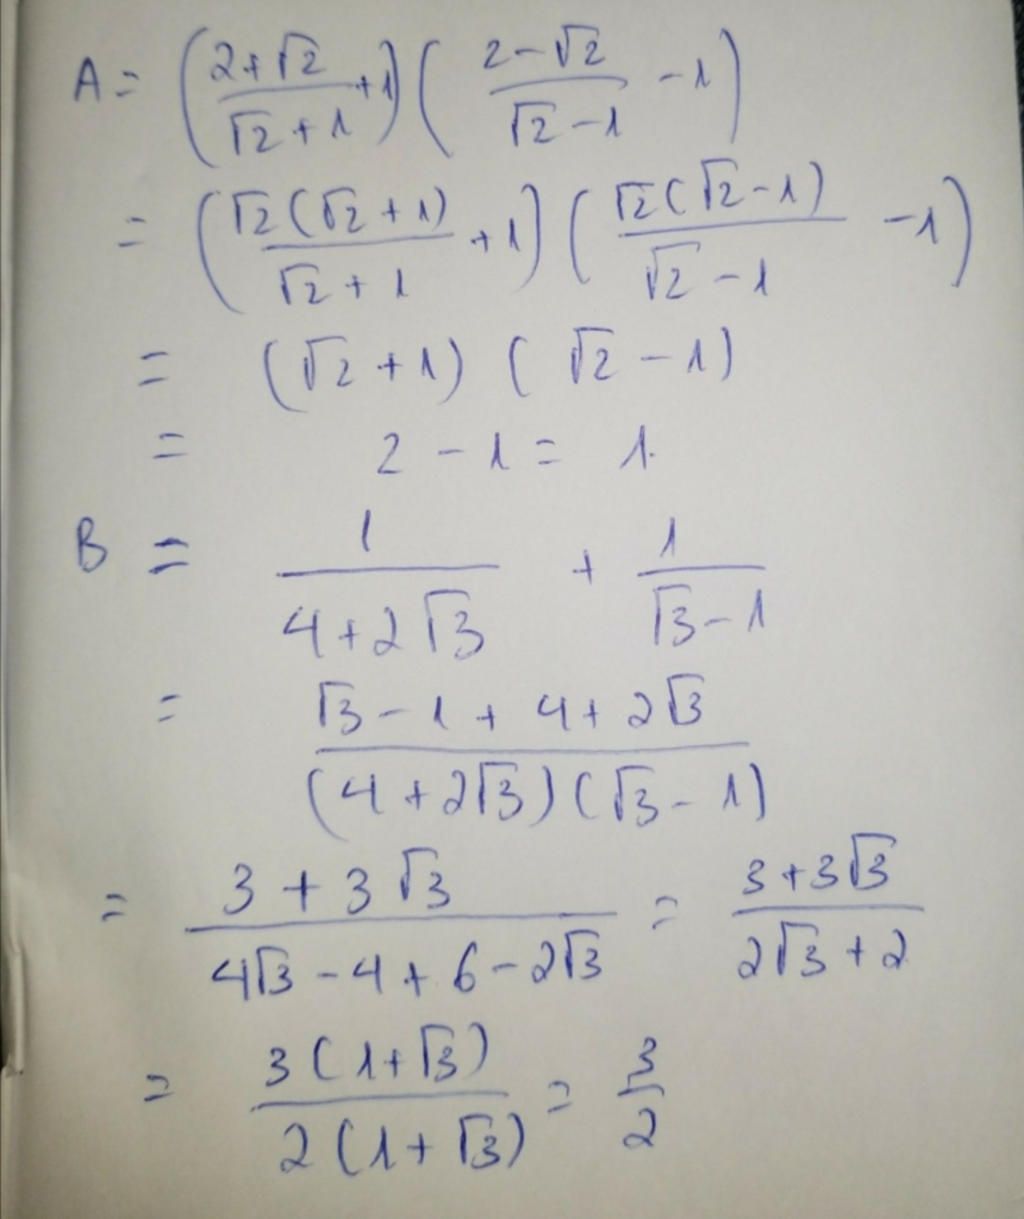 A = ( (2+√2)/(√2+1) +1 ) ( (2-√2)/(√2-1) -1 )
= ( √2(√2+1)/(√2+1) +1 ) ( √2(√2-1)/(√2-1) -1 )
= (√2+1) (√2-1)
= 2 - 1 = 1.
B = 1/(4+2√3) + 1/(√3-1)
= (√3-1+4+2√3)/((4+2√3)(√3-1))
= (3+3√3)/(4√3-4+6-2√3) = (3+3√3)/(2√3+2)
= 3(1+√3)/(2(1+√3)) = 3/2